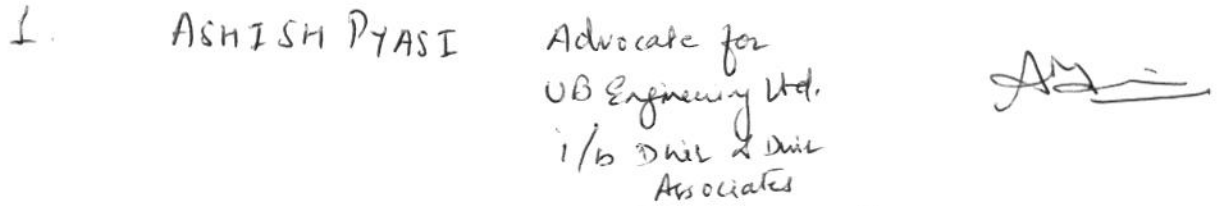 1. ASHISH PYASI Advocate for
UB Engineering Ltd.
i/b Dhir & Dhir
Associates